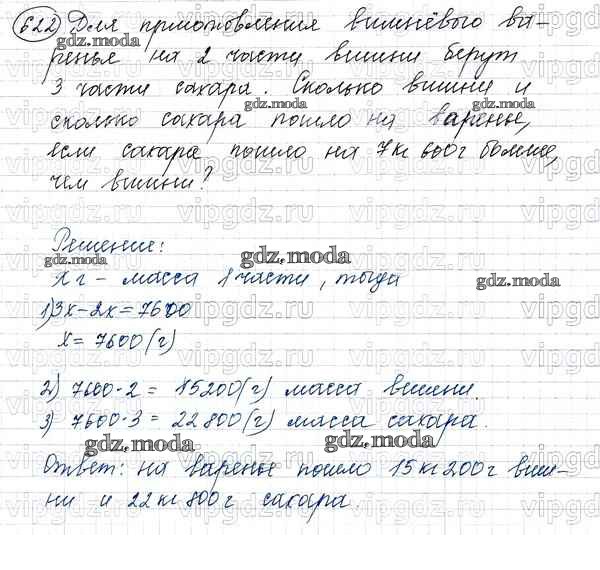 622) Для приготовления вишнёвого ва-
ренье на 2 части вишни берут
3 части сахара. Сколько вишни и
сколько сахара пошло на варенье,
если сахара пошло на 7кг 600г больше,
чем вишни?
Решение:
x г - масса 1 части, тогда
1) 3x-2x=7600
x=7600(г)
2) 7600·2 = 15200(г) масса вишни.
3) 7600·3 = 22800(г) масса сахара.
Ответ: на варенье пошло 15кг200г виш-
ни и 22кг 800г сахара.
gdz.moda
vipgdz.ru